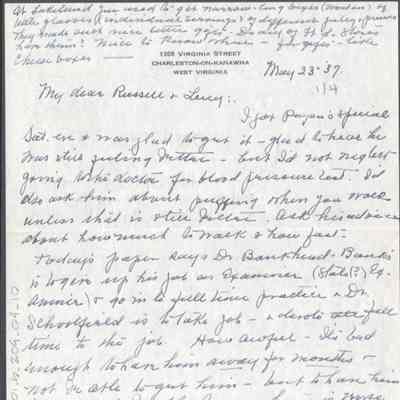 At Lakeland you used to get narrow long boxes (wooden) of
little glasses (individual servings) of different juices, prunes
They made such nice little gifts. Do any of St. P. Stores
have them? Nice to Round When - for gifts - Little
Cheese boxes
1326 VIRGINIA STREET
CHARLESTON-ON-KANAWHA
WEST VIRGINIA
May 23-'37
1/4
My dear Russell & Lucy:
I got Papa's special
Sat. eve & was glad to get it - glad to hear he
was still feeling better - but do not neglect
going to the doctor for blood pressure test. Do
also ask him about puffing when you walk
unless that is still better. Ask his advice
about how much to walk & how fast.
Today's paper says Dr. Bankhead-Banks
is to give up his job as Examiner (State(?) Ex-
aminer) & go into full time practice & Dr.
Schoolfield is to take job - & devote all full
time to the job. How awful - It's bad
enough to have him away for months &
not be able to get him - but to have him